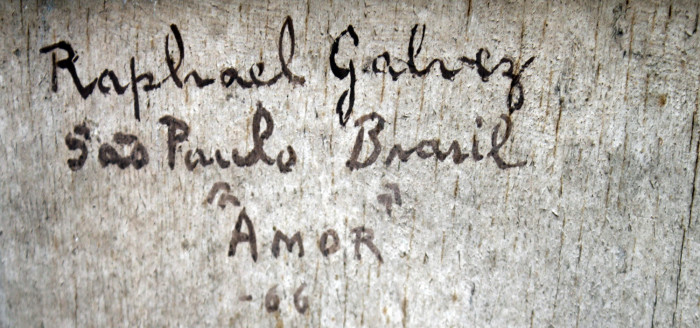 Raphael Galvez
São Paulo Brasil
"AMOR"
-66